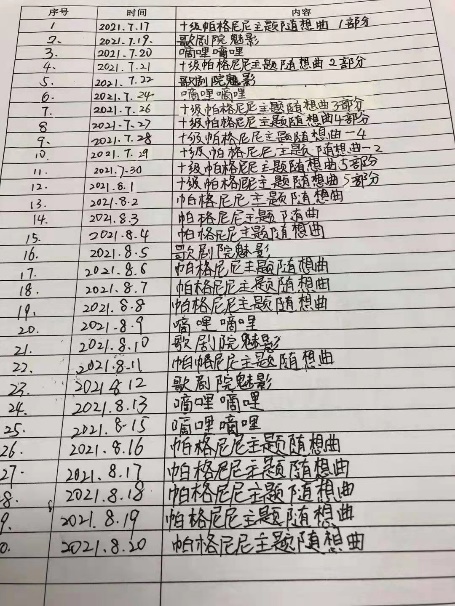 序号 时间 内容
1 2021.7.17 十级帕格尼尼主题随想曲 1部分
2. 2021.7.19. 歌剧院魅影
3. 2021.7.20 嘀哩嘀哩
4. 2021.7.21 十级帕格尼尼主题随想曲 2部分
5. 2021.7.22 歌剧院魅影
6. 2021.7.24 嘀哩嘀哩
7. 2021.7.26 十级帕格尼尼主题随想曲3部分
8 2021.7.27 十级帕格尼尼主题随想曲4部分
9. 2021.7.28 十级帕格尼尼主题随想曲-4
10. 2021.7.29 十级帕格尼尼主题随想曲-2
11. 2021.7.30 十级帕格尼尼主题随想曲5部分
12. 2021.8.1 十级帕格尼尼主题随想曲5部分
13. 2021.8.2 帕格尼尼主题随想曲
14. 2021.8.3 帕格尼尼主题随想曲
15. 2021.8.4 帕格尼尼主题随想曲
16. 2021.8.5 歌剧院魅影
17. 2021.8.6 帕格尼尼主题随想曲
18. 2021.8.7 帕格尼尼主题随想曲
19. 2021.8.8 帕格尼尼主题随想曲
20. 2021.8.9 嘀哩嘀哩
21. 2021.8.10 歌剧院魅影
22. 2021.8.11 帕格尼尼主题随想曲
23. 2021.8.12 歌剧院魅影
24. 2021.8.13 嘀哩嘀哩
25. 2021.8.15 嘀哩嘀哩
26. 2021.8.16 帕格尼尼主题随想曲
27. 2021.8.17 帕格尼尼主题随想曲
8. 2021.8.18 帕格尼尼主题随想曲
9. 2021.8.19 帕格尼尼主题随想曲
0. 2021.8.20 帕格尼尼主题随想曲